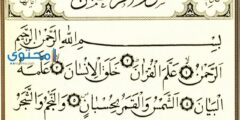 بِسْمِ اللَّهِ الرَّحْمَٰنِ الرَّحِيمِ
الرَّحْمَٰنُ ۝ عَلَّمَ الْقُرْآنَ ۝ خَلَقَ الْإِنسَانَ ۝ عَلَّمَهُ
الْبَيَانَ ۝ الشَّمْسُ وَالْقَمَرُ بِحُسْبَانٍ ۝ وَالنَّجْمُ وَالشَّجَرُ
محتوي